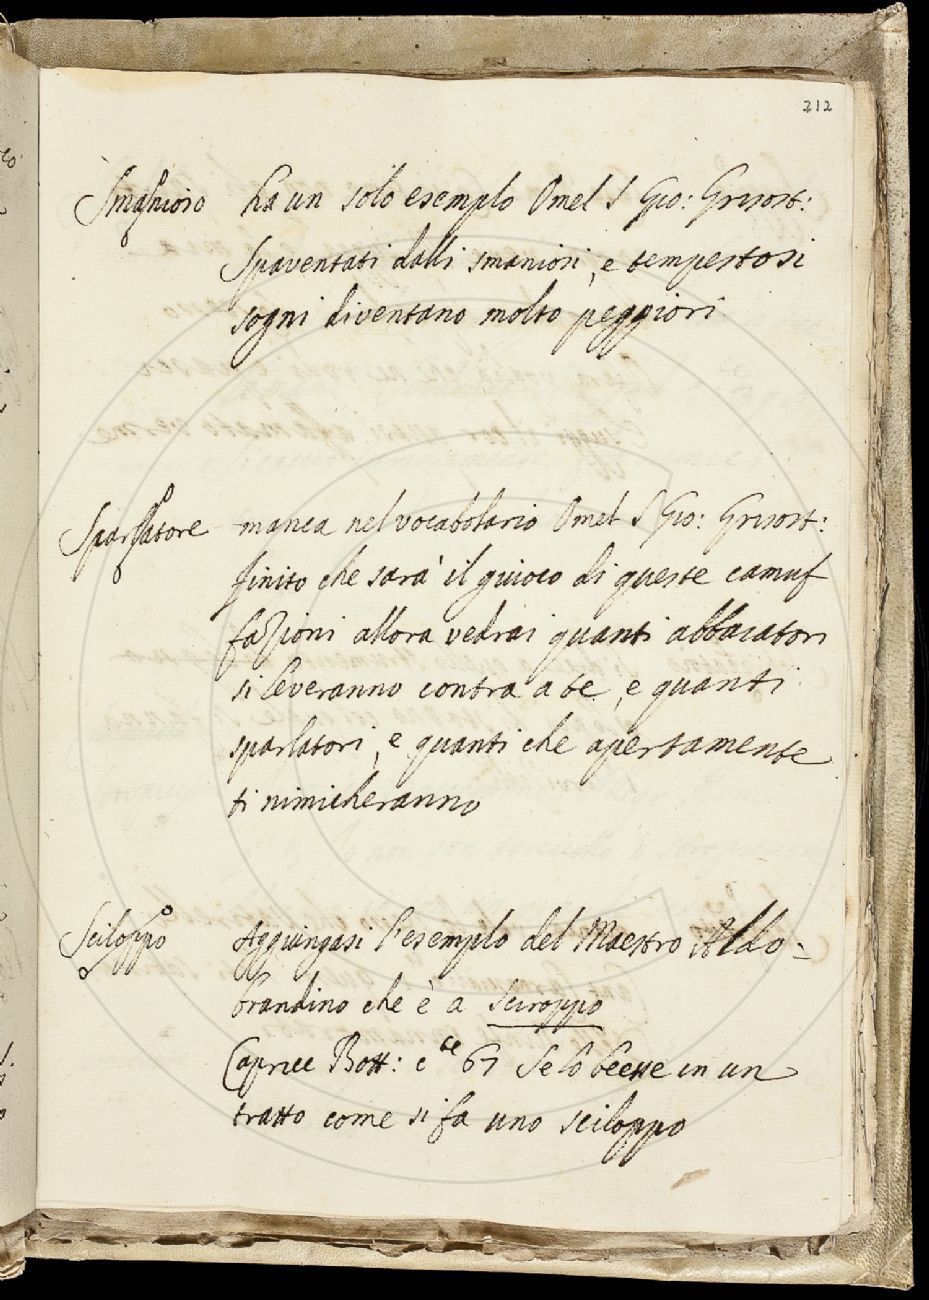 212
Smanioso ha un solo esemplo Omel S Gio: Grisost:
Spaventati dalli smaniosi, e tempestosi
sogni diventano molto peggiori
Sparlatore manca nel vocabolario Omel S Gio: Grisost:
finito che sarà il giuoco di queste camuf
fazioni allora vedrai quanti abbaiatori
si leveranno contra a te, e quanti
sparlatori, e quanti che apertamente
ti nimicheranno
Sciloppo Aggiungasi l'esemplo del Maestro Aldo-
brandino che è a Sciroppo
Capricc Bott: c te 67 Se lo beesse in un
tratto come si fa uno sciloppo